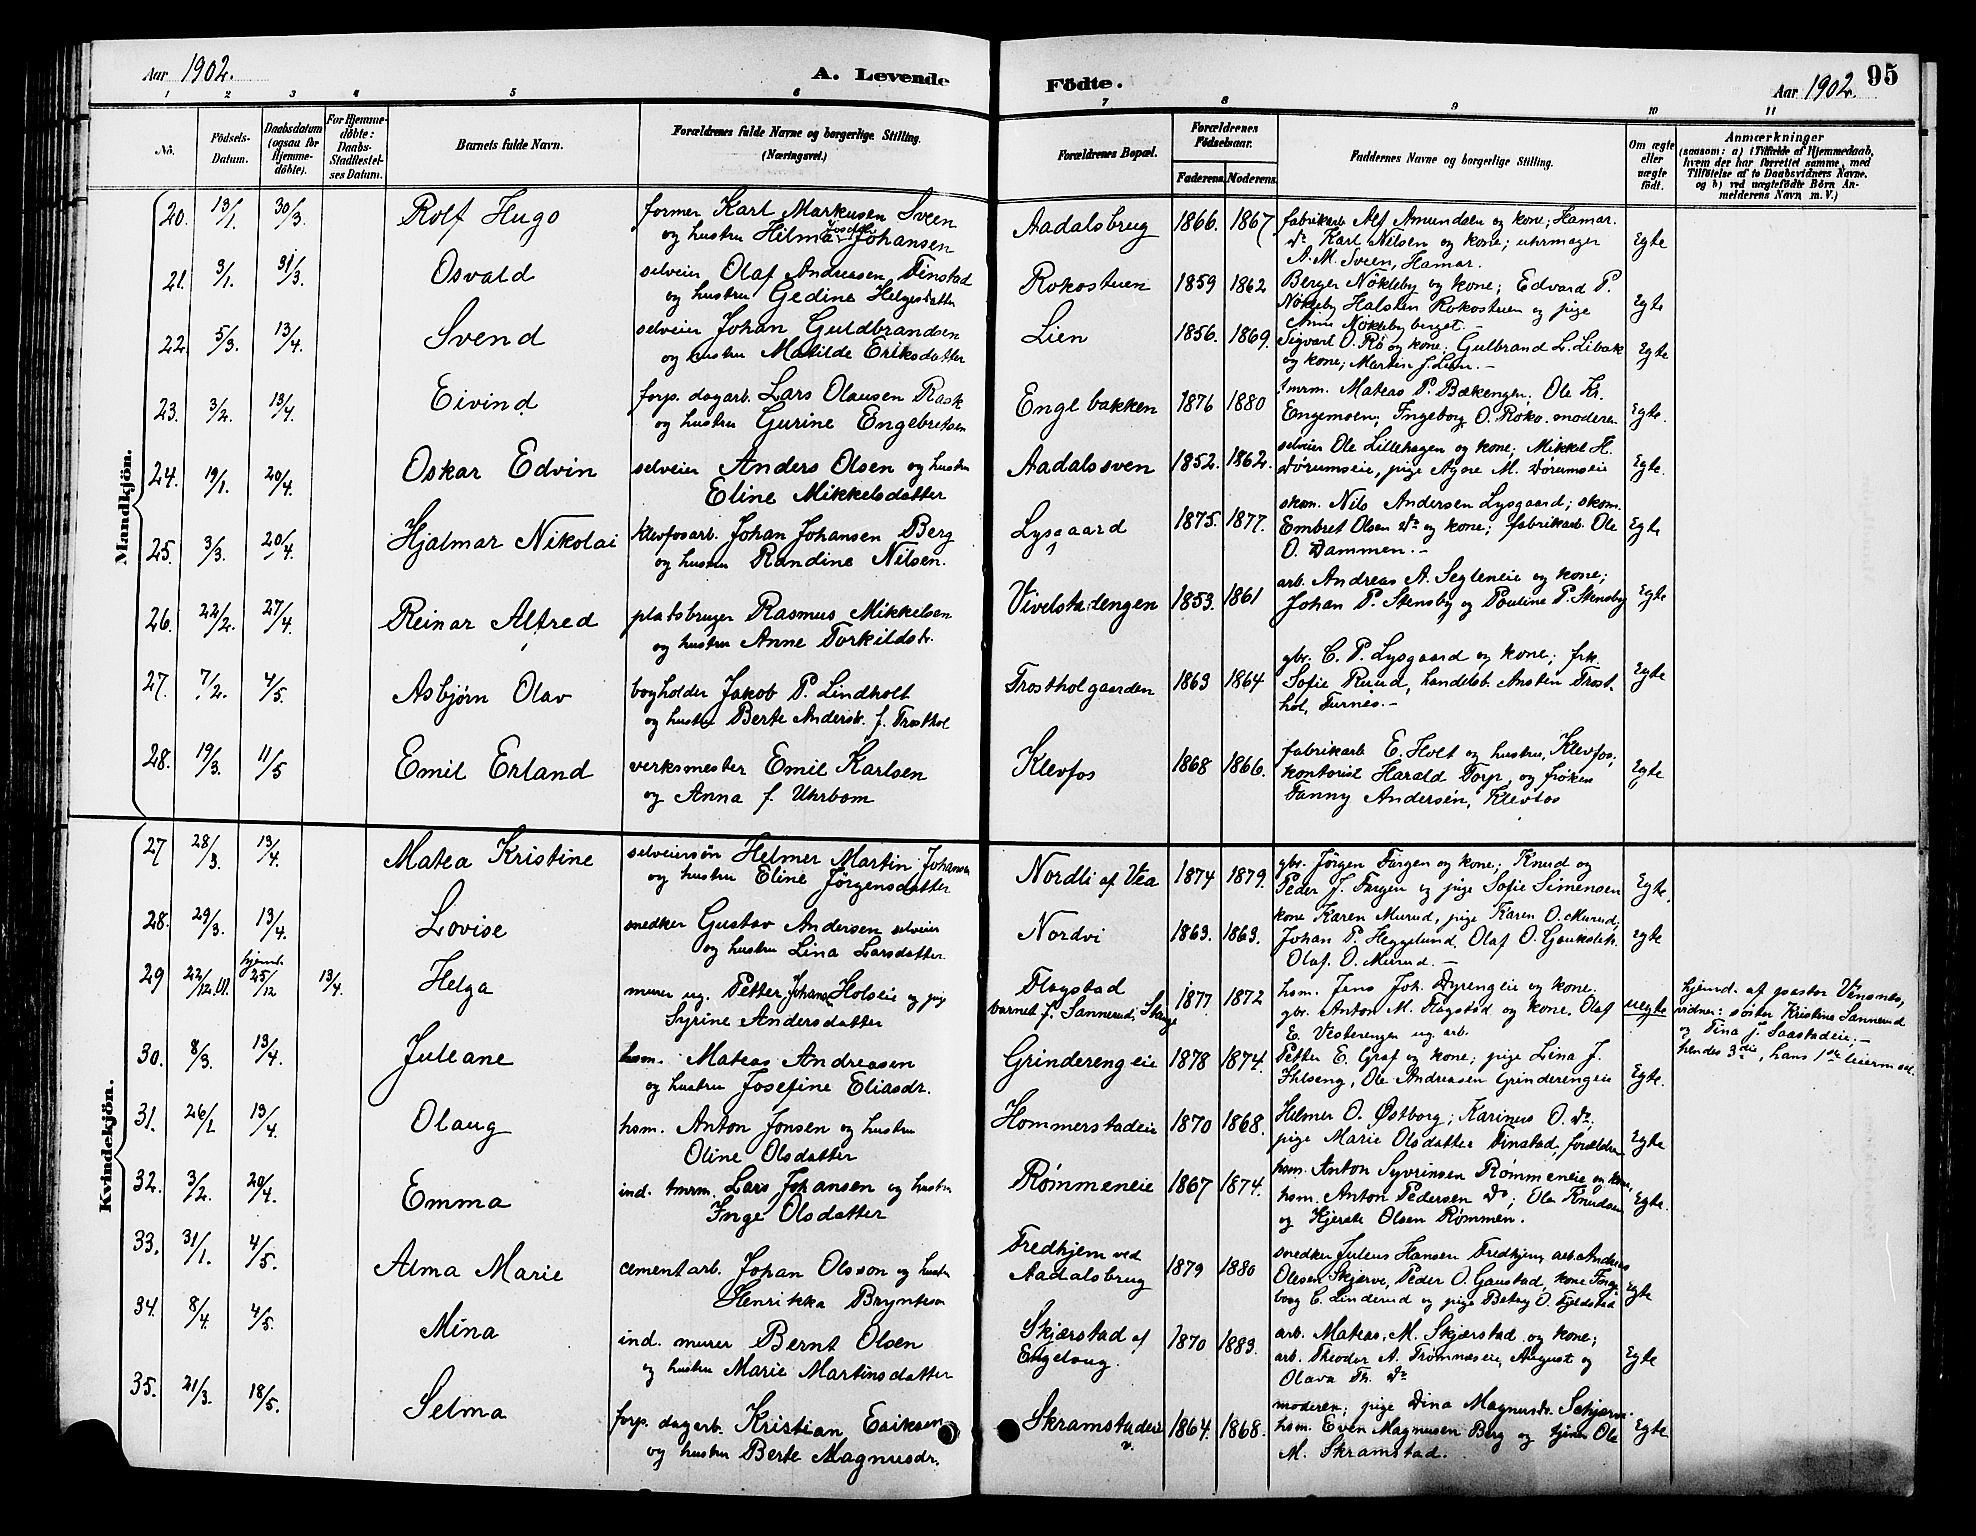 Aar 1902.
A. Levende
Födte.
Aar 1902.
95
1 2 3 4 5 6 7 8 9 10 11
No.
Födsels-
Datum.
Daabsdatum
(ogsaa for
Hjemme-
döbte).
For Hjemme-
döbte:
Daabs-
Stadfæstel-
ses Datum.
Barnets fulde Navn.
Forældrenes fulde Navne og borgerlige Stilling.
(Næringsvei.)
Forældrenes Bopæl.
Forældrenes
Födselsaar.
Faderens.
Moderens.
Faddernes Navne og borgerlige Stilling.
Om ægte
eller
uægte
födt.
Anmærkninger
(saasom: a) i Tilfælde af Hjemmedaab,
hvem der har forrettet samme, med
Tilföielse af to Daabsvidners Navne.
og b) ved uægtefödte Börn An-
melderens Navn m. V.)
Mandkjön.
20. 13/1. 30/3. Rolf Hugo
former Karl Markusen Sveen
og hustru Hilma Johansen
Aadalsbrug 1866. 1867
fabrikarb. Alf Amundsen og kone; Hamar.
do Karl Nilsen og kone; uhrmager
A. M. Sveen, Hamar.
Egte
21. 3/1. 31/3. Osvald
selveier Olaf Andreasen Finstad
og hustru Gedine Helgesdatter
Rokostuen 1859 1862
Berger Nökleby og kone; Edvard P.
Nökleby Halsten Rokostuen og pige
Anne Nöklebyberget. –
Egte
22. 5/3. 13/4. Svend
selveier Johan Guldbrandsen
og hustru Matilde Eriksdatter
Lien 1856. 1869.
Sigvart O. Rö og kone. Gulbrand L. Libak
og kone; Martin J. Lien. –
Egte
23. 3/2. 13/4. Eivind
forp. dagarb. Lars Olausen Rask
og hustru Gurine Engebretsen
Englbakken 1876 1880
tmrm. Mateas P. Bækengen; Ole Kr.
Engemoen; Ingeborg O. Roko. moderen
Egte.
24. 19/1. 20/4. Oskar Edvin
selveier Anders Olsen og hustru
Eline Mikkelsdatter
Aadalssven 1852. 1862.
selveier Ole Lillehagen og kone; Mikkel H.
Dørumseie, pige Agne M. Dørumseie
Egte.
25. 3/3. 20/4. Hjalmar Nikolai
klevfosarb. Johan Johansen Berg
og hustru Randine Nilsen.
Lysgaard 1875. 1877.
skom. Nils Andersen Lysgaard; skom.
Embret Olsen do og kone; fabrikarb. Ole
O. Dammen. –
Egte
26. 22/2. 27/4. Reinar Alfred
pladsbruger Rasmus Mikkelsen
og hustru Anne Torkildsdr.
Vivelstadengen 1853. 1861
arb. Andreas A. Segleneie og kone;
Johan P. Stensby og Pouline P. Stensby
Egte
27. 7/2. 4/5. Asbjørn Olav
bogholder Jakob P. Lindholt
og hustru Berte Andersdr. f. Trosthol
Trostholgaarden 1863 1864
gbr. C. P. Lysgaard og kone; frk.
Sofie Ruud, handelsb. Ansten Trost-
hol, Furnes. –
Egte
28. 19/3. 11/5 Emil Erland
verksmester Emil Karlsen
og Anna f. Uhrbom
Klevfos 1868 1866.
fabrikarb E. Holt og hustru, Klevfos;
kontorist Harald Torp, og frøken
Fanny Andersén, Klevfos
Egte
Kvindekjön.
27 28/3. 13/4. Matea Kristine
selveiersön Helmer Martin Johansen
og hustru Eline Jörgensdatter
Nordli af Vea 1874 1879.
gbr. Jörgen Fargen og kone; Knud og
Peder J. Fargen og pige Sofie Simensen
Egte.
28. 29/3. 13/4. Lovise
snedker Gustav Andersen selveier
og hustru Lina Larsdatter
Nordvi 1863. 1863.
kone Karen Murud, pige Karen O. Murud,
Johan P. Heggelund. Olaf O. Gauksteh.
Olaf. O. Murud. –
Egte
29 22/12.01. hjemd. 25/12 13/4. Helga
murer ug. Petter Johans. Holseie og pige
Syrine Andersdatter
Flagstad
barnet f. Sannerud, Stange
1877. 1872
hsm. Jens Joh. Dyrengeie og kone.
gbr. Anton M. Flagstad og kone, Olaf
E. Vesterengen ug. arb.
uegte
hjemd. af pastor Vinsnes,
vidner: søster Kristine Sannerud
og Tina J. Saastadeie; –
hendes 3die, hans 1ste leiermaal.
30. 8/3. 13/4. Juleane
hsm. Mateas Andreasen
og hustru Josefine Eliasdr.
Grinderengeie 1878 1874.
Petter E. Graf og kone; pige Lina J.
Ihlseng, Ole Andreasen Grinderengeie
Egte.
31. 26/1 13/4. Olaug
hsm. Anton Jonsen og hustru
Oline Olsdatter
Hommerstadeie 1870 1868.
Helmer O. Østborg; Karinus O. do;
pige Marie Olsdatter Finstad, forældrene
Egte
32. 3/2. 20/4. Emma
ind. tmrm. Lars Johansen og hustru
Inge Olsdatter
Rømmeneie 1867 1874.
hsm. Anton Syvrinsen Rømmeneie og kone,
hsm. Anton Pedersen do; Ole Knudsen
og Kjerste Olsen Rømmen.
Egte.
33. 31/1. 4/5. Alma Marie
cementarb. Johan Olsson og hustru
Henrikka Bryntesen
Fredhjem ved
Aadalsbrug
1879 1880
snedker Juleus Hansen Fredhjem, arb. Andreas
Olesen Skjerve, Peder O. Gaustad, kone Inge-
borg C. Linderud og pige Betzy O. Fjeldstad
Egte
34. 8/4. 4/5. Mina
ind. murer Bernt Olsen
og hustru Marie Martinsdatter
Skjærstad af
Engelaug.
1870 1883.
arb. Mateas M. Skjærstad og kone;
arb. Theodor A. Trømnæseie, August og
Olava Th. do
Egte
35. 21/3. 18/5. Selma
forp. dagarb. Kristian Eriksen
og hustru Berte Magnusdr.
Skramstadeie
v.
1864. 1868.
moderen; pige Dina Magnusdr.
hsm. Even Magnusen Berg og Ole
M. Skramstad.
Egte